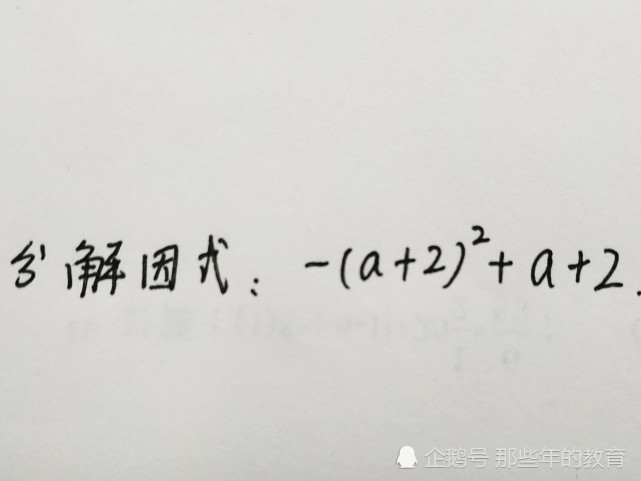 分解因式：-(a+2)²+a+2.
企鹅号 那些年的教育